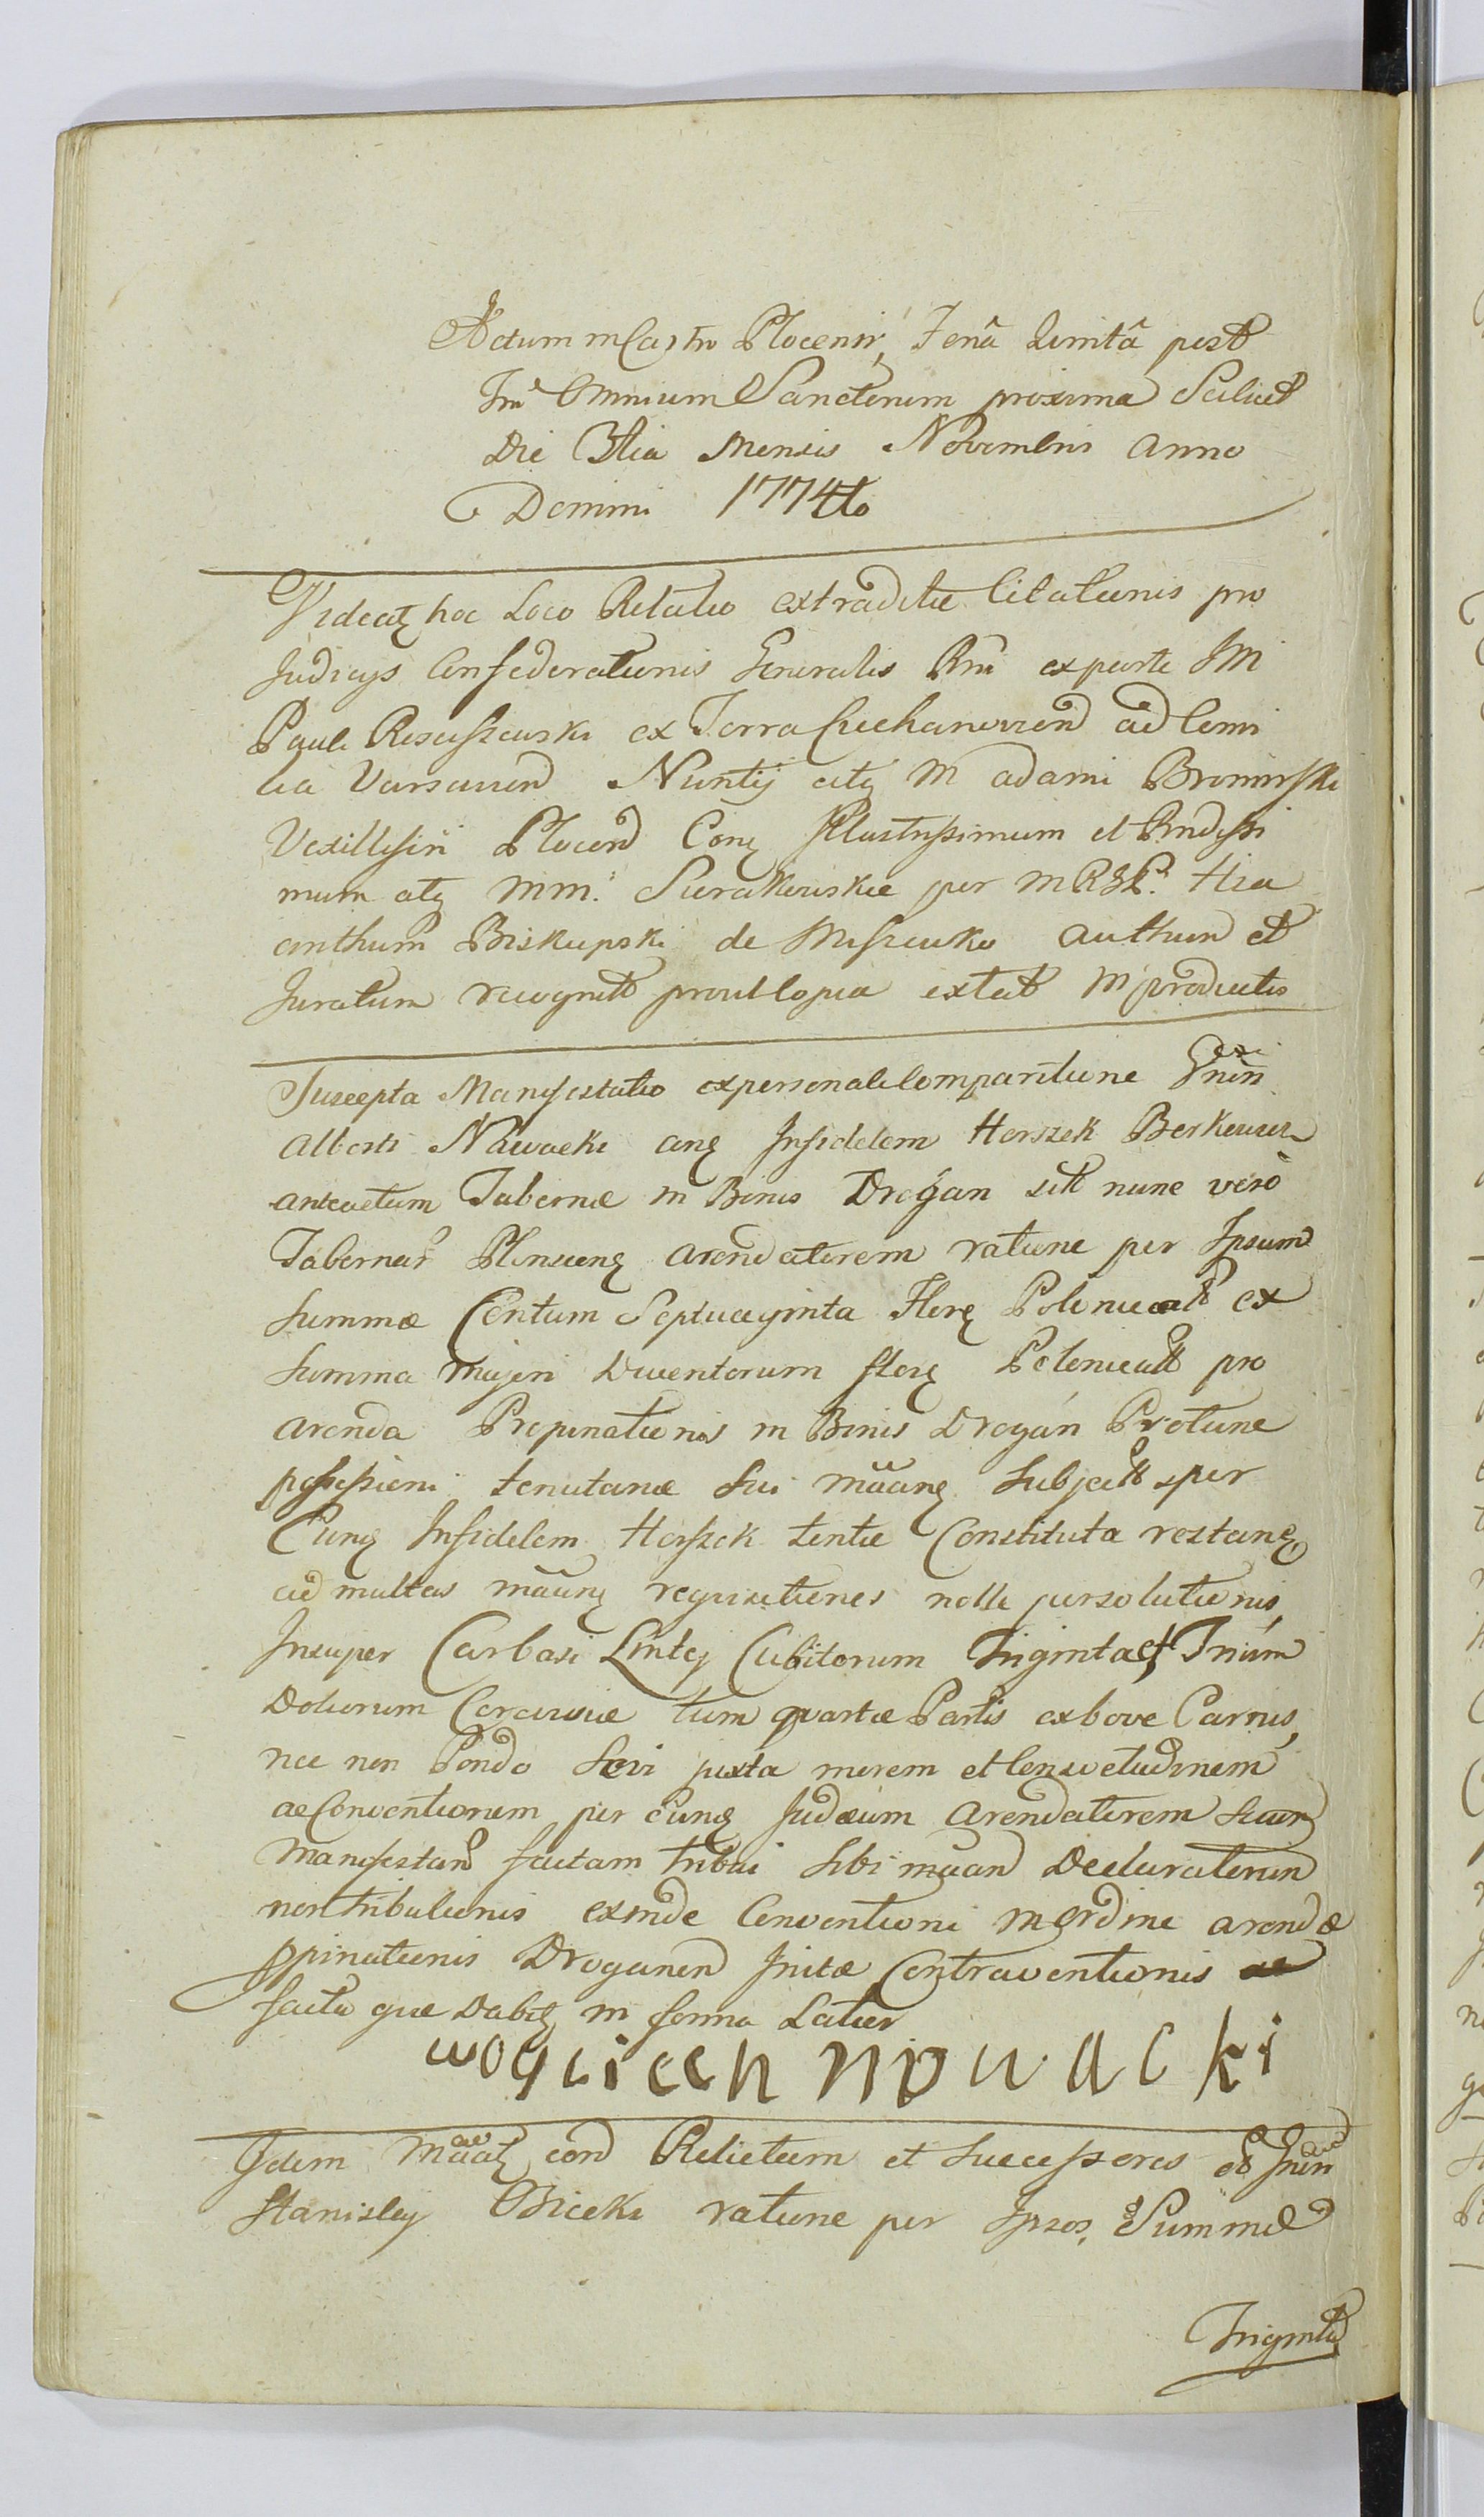 Actum in Castro Plocensi, Feria Quinta post
Im Omnium Sanctorum proxima Scilicet
Die 3tia Mensis Novembris Anno
Domini 1774to
Videatq hoc Loco Relatio extraditæ Citationis pro
Judicijs Confederationis Generalis Rni ex parte IM
Pauli Rosciszewski ex Terra Ciechanovien ad Comi
tia Varsavien Nuntij atq M Adami Bromirski
Vexilliferi Plocen Conq Illustrissimum et Rndissi
mum atq MM. Sierakowskie per MRGL. Hia
cinthum Biskupski de Miszewko Authen et
Juratum recognit prout Copia extat in productis
Suscepta Manifestatio ex personali Comparitione Gnısi
Alberti Nawacki cnq Infidelem Herszek Berkowicz
anteactum Tabernæ in Bonis Drogan sit nunc vero
Tabernar Plonscenq Arendatorem ratione per Ipsum
Summæ Centum Septuaginta Florq Polonicalt ex
Summa Majori Ducentorum florq Polonicalt pro
arenda Propinationis in Bonis Drogán Protunc
possessioni tenutariæ Sui mãanq Subject per
Eunq Infidelem Herszek tentæ Constituta restanq
ad multas mãanq requisitiones nolle persolutionis,
Insuper Carbasi Lintej Cubitorum Triginta et Trium
Doliorum Cerevisiæ tum quartæ Partis ex bove Carnis,
nec non Pondo Sevi juxta morem et Consvetudinem
ac Conventionem per eunq Judæum Arendatorem Suum
Manifestan factam tribui Sibi mãan Declaratorum
non tribulionis exinde Conventioni in ordine arendæ
Ppinationis Droganen Initæ Contraventionis ae
facta quæ Dabitq in forma Latior
woyciech nowacki
Idem Mãatq con Relictam et Successores ol Gnın
Stanislaj Osiecki ratione per Ipsos Summæ
Triginta